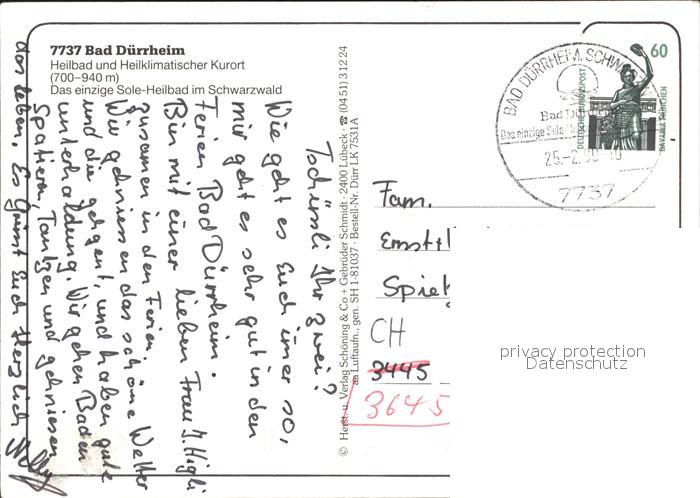 7737 Bad Dürrheim
Heilbad und Heilklimatischer Kurort
(700–940 m)
Das einzige Sole-Heilbad im Schwarzwald
Tschüssli Ihr zwei?
Wie geht es Euch imer so,
mir geht es sehr gut in den
Ferien Bad Dürrheim.
Bin mit einer lieben Frau J. Higli
zusamen in den Ferien.
Wir geniessen das schöne Wetter
und die gegent, und haben gute
unterhaldung. Wir gehen Baden
Spatieren, Tantzen und geniessen
das leben. Es grüsst Euch Herzlich
© Herst. u. Verlag Schöning & Co + Gebrüder Schmidt · 2400 Lübeck · ☎ (0451) 3 12 24
Luftaufn., gen. SH 1-81037 · Bestell-Nr. Dürr LK 7531A
60
DEUTSCHE BUNDESPOST
BAVARIA MÜNCHEN
BAD DÜRRHEIM, SCHW
Bad Dürrheim
Das einzige Sole-
25.-2.
7737
Fam.
Ernst
Spie
CH
3445
3645
privacy protection
Datenschutz